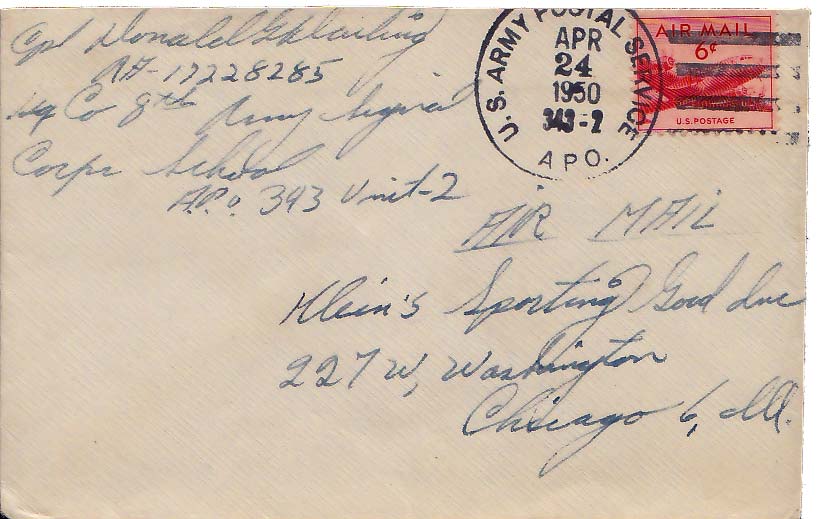 Cpl Donald G Darling
RA-17228285
Hq Co 8th Army Signal
Corps School
A.P.O. 343 Unit-2
U.S. ARMY POSTAL SERVICE
APR
24
1950
343-2
A.P.O.
AIR MAIL
6¢
U.S. POSTAGE
AIR MAIL
Klein's Sporting Good Inc
227 W, Washington
Chicago 6, Ill.